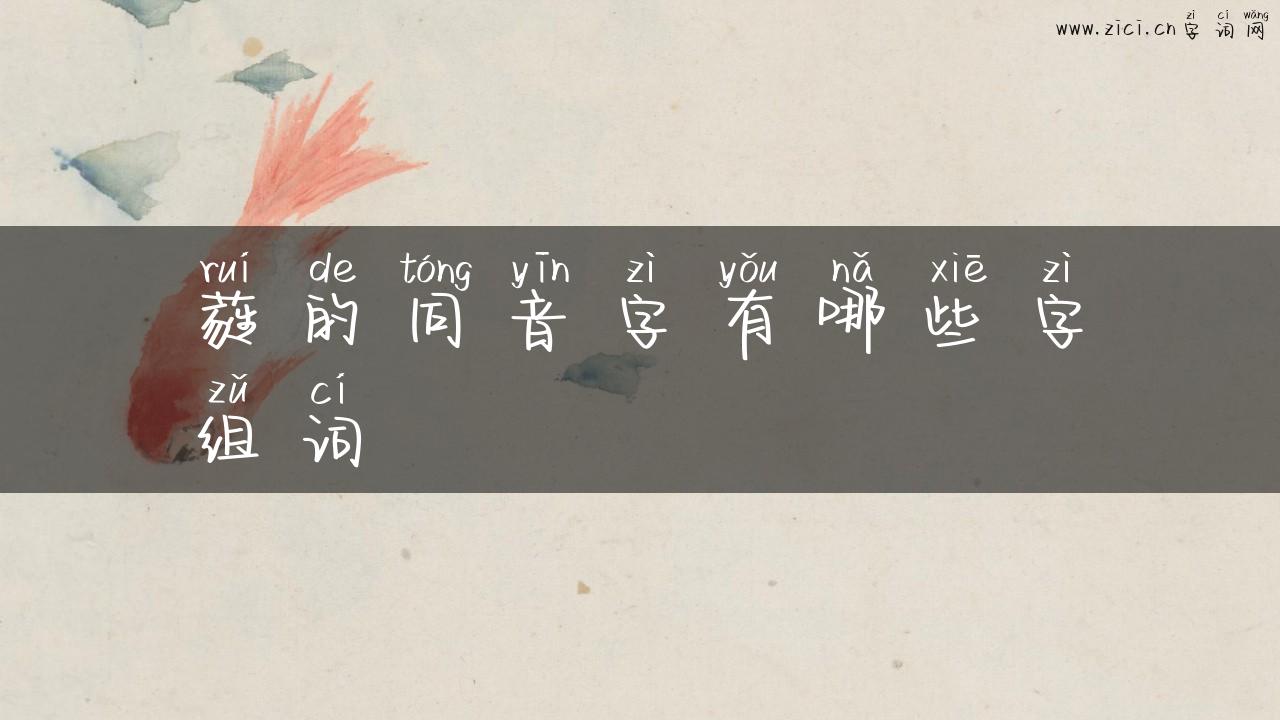 zì cí wǎng
www.zici.cn 字词网
ruí de tóng yīn zì yǒu nǎ xiē zì
蕤的同音字有哪些字
zǔ cí
组词